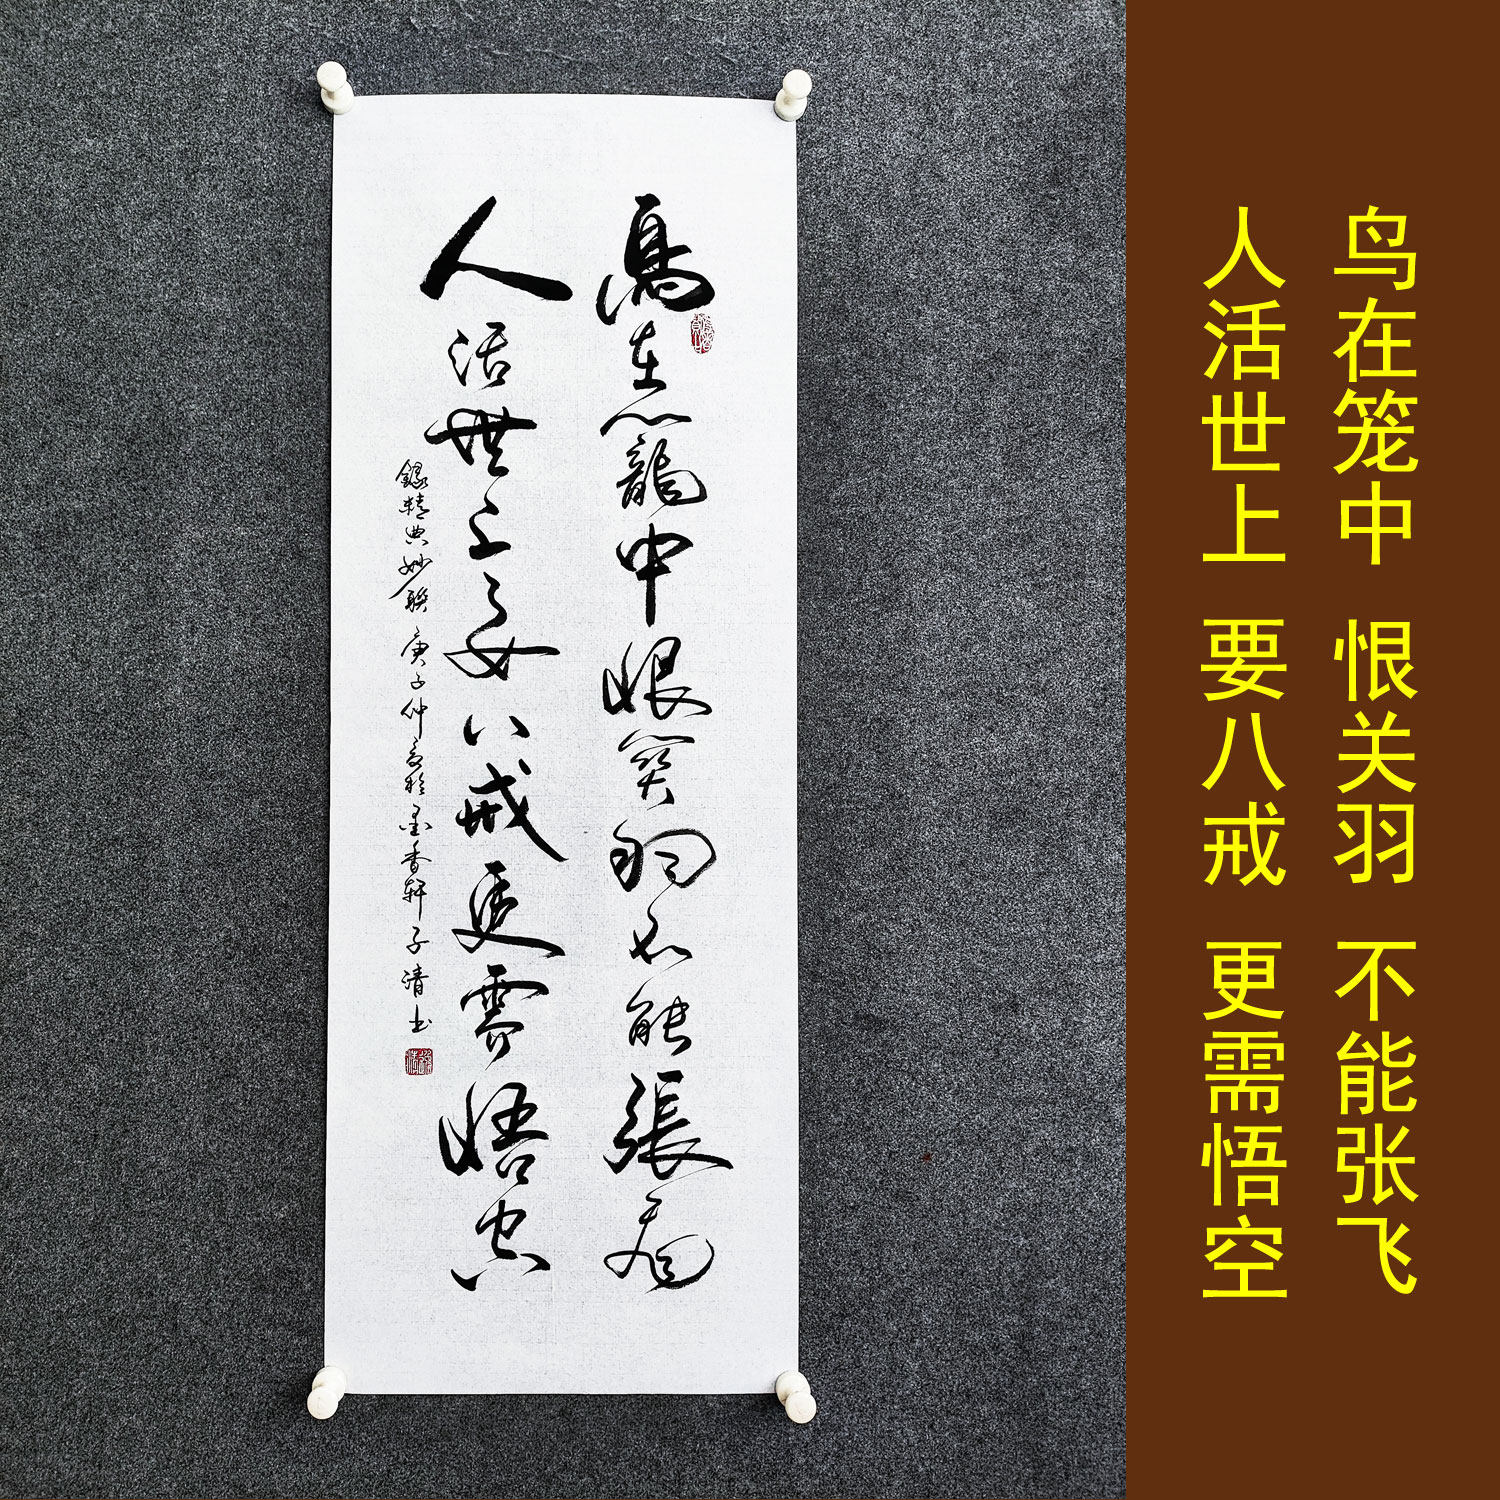 鳥在籠中恨関羽不能張飛
人活世上要八戒更需悟空
錄精典妙聯庚子仲夏於墨香軒子清书
鸟在笼中 恨关羽 不能张飞
人活世上 要八戒 更需悟空